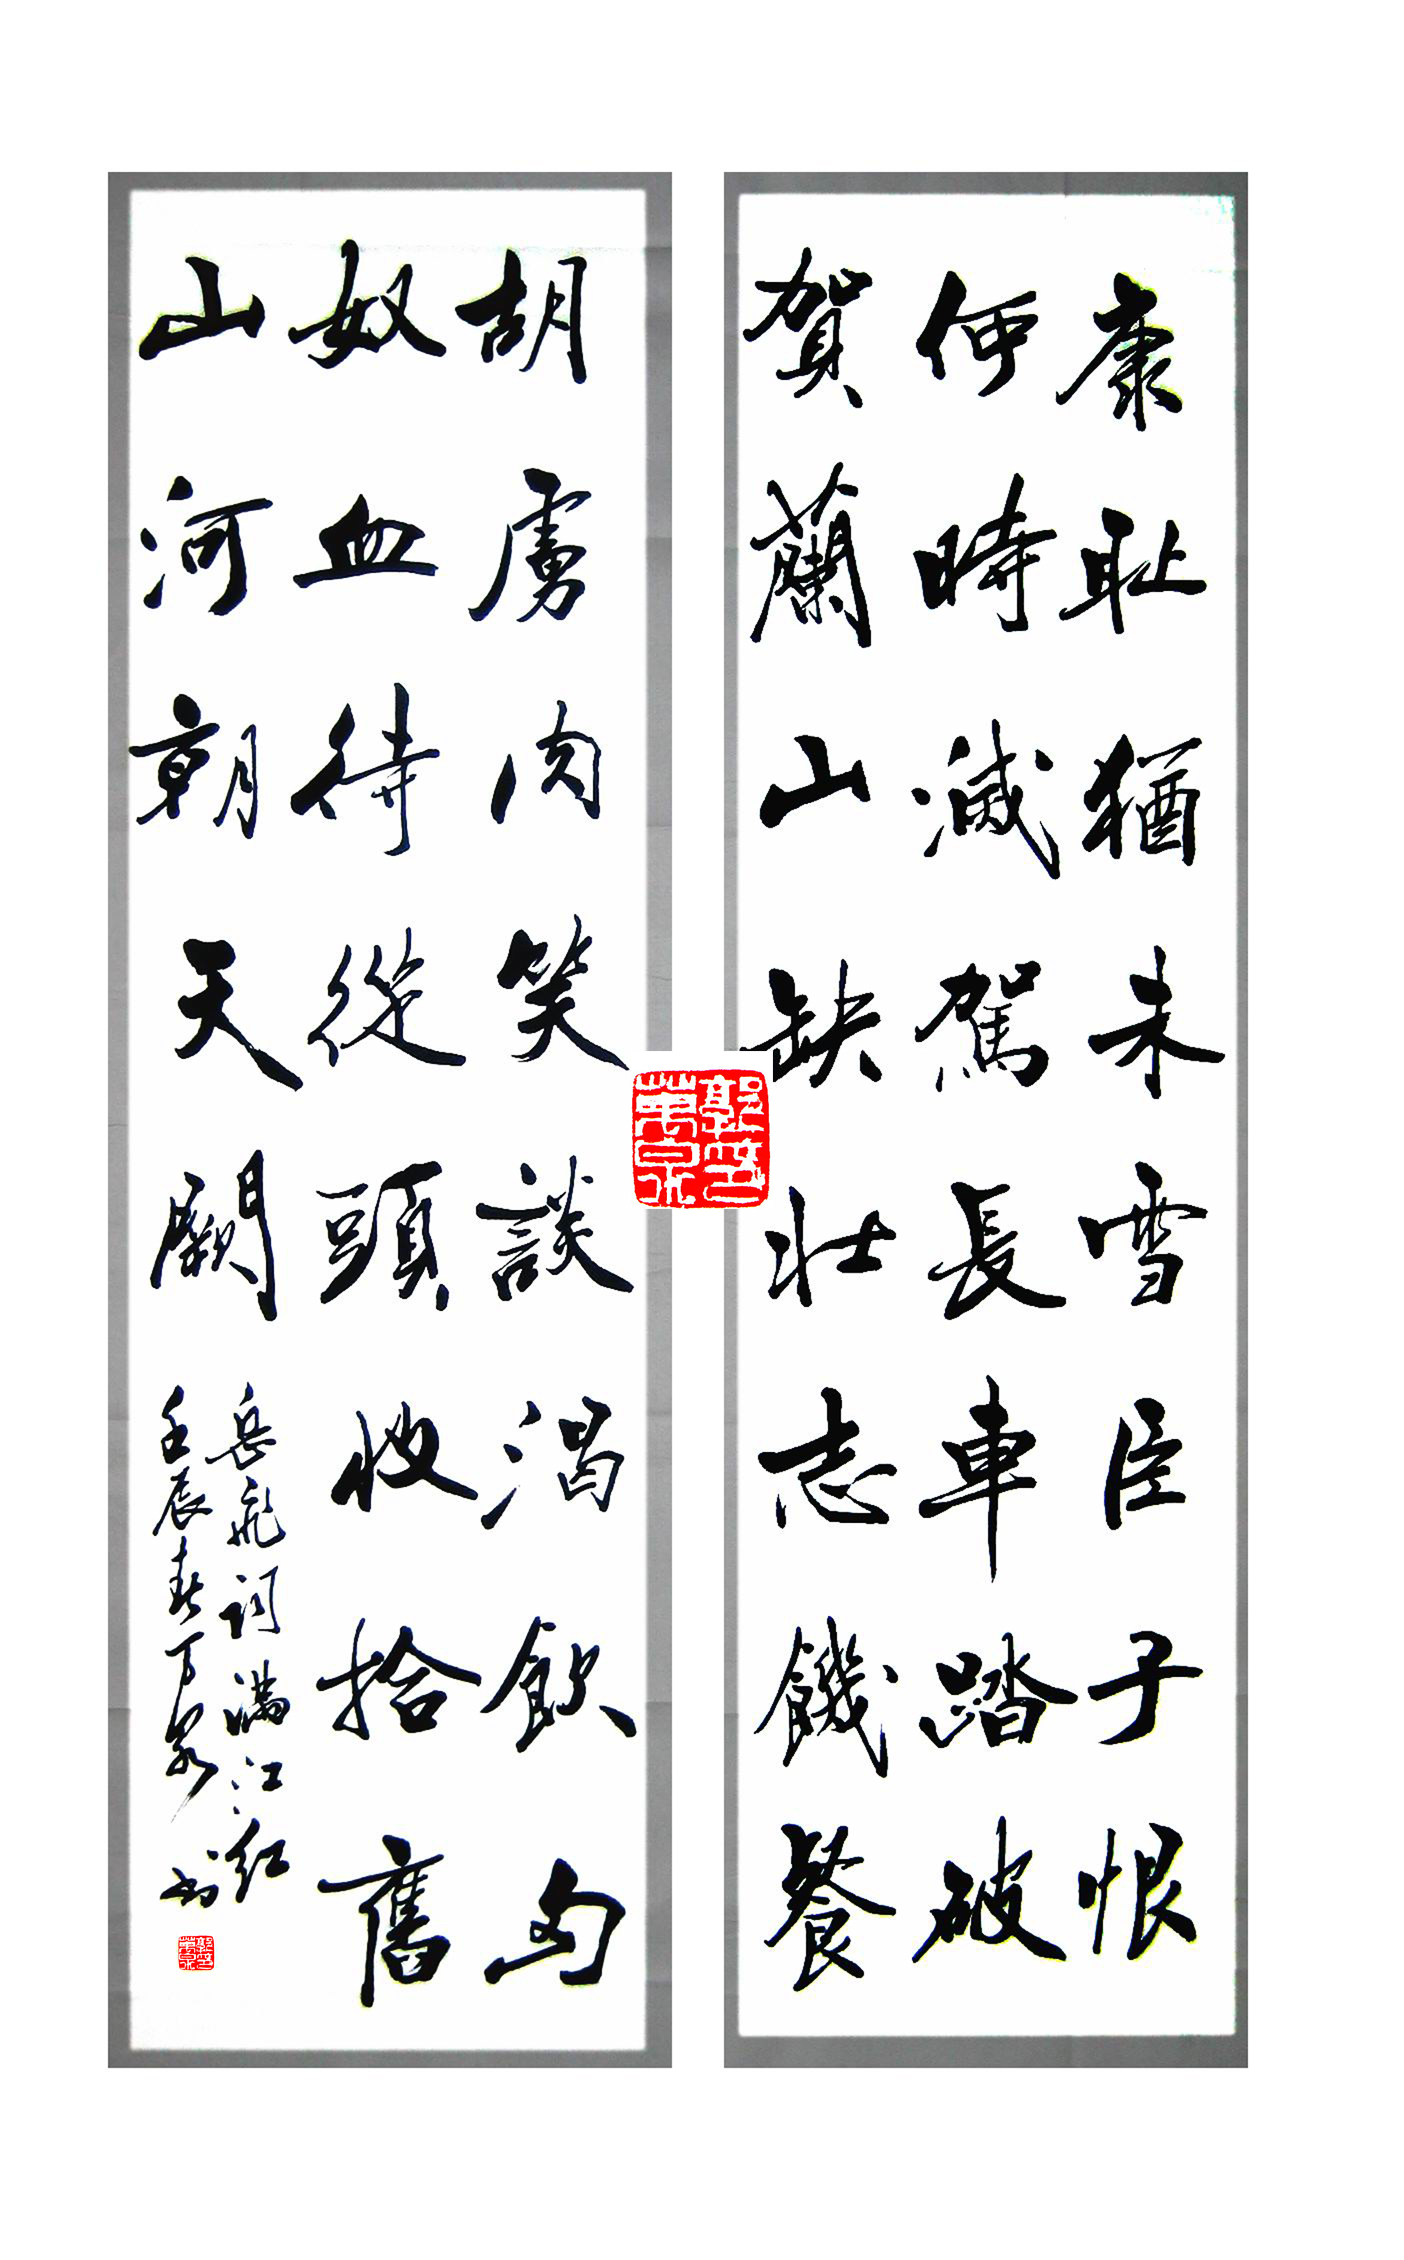 康耻猶未雪臣子恨
何時滅駕長車踏破
賀蘭山缺壯志饑餐
胡虜肉笑談渴飲匈
奴血待從頭收拾舊
山河朝天闕
岳飛词满江红
壬辰春万泉书